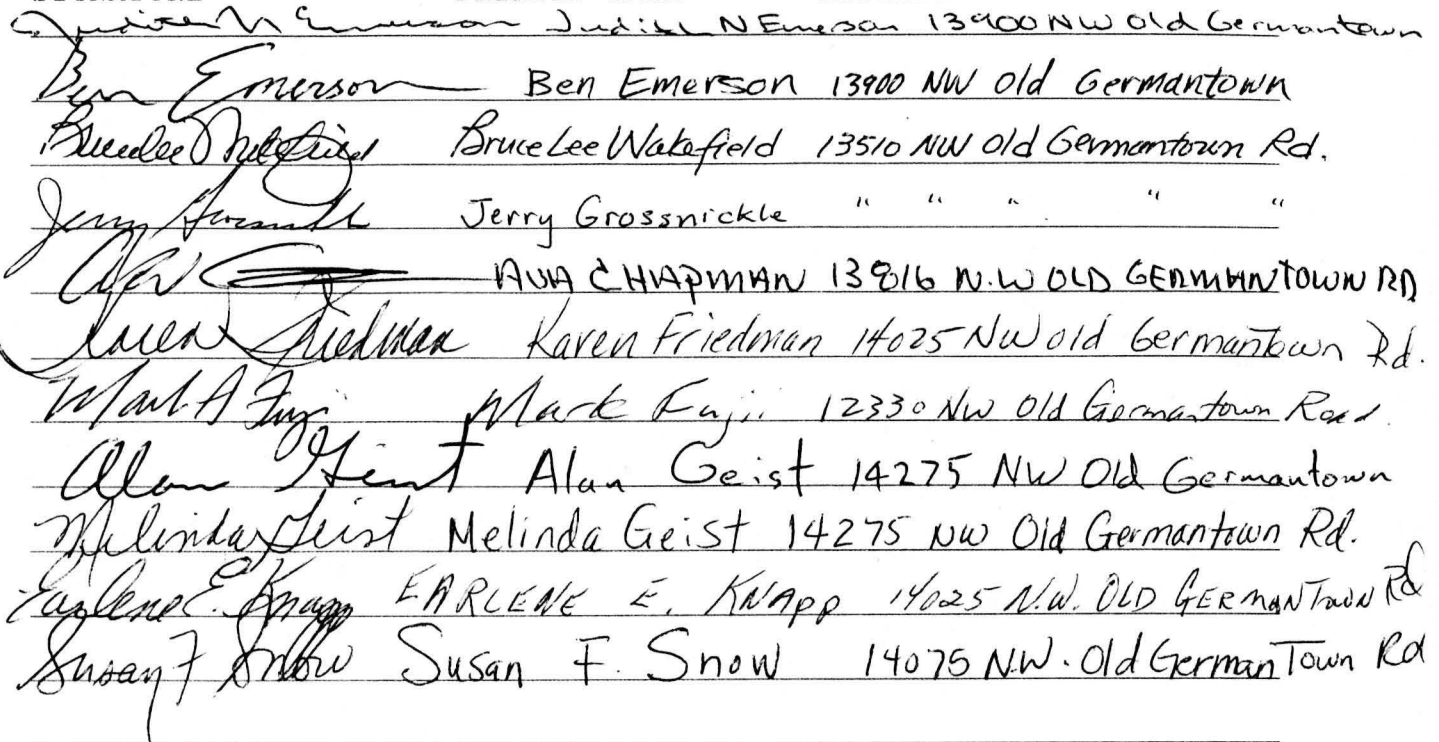 Judith N Emerson Judith N Emerson 13900 NW Old Germantown
Ben Emerson Ben Emerson 13900 NW Old Germantown
Bruce Lee Wakefield 13510 NW Old Germantown Rd.
Jerry Jerry Grossnickle " " " " "
AVA CHAPMAN 13816 N.W OLD GERMANTOWN RD
Karen Friedman Karen Friedman 14025 NW Old Germantown Rd.
Mark A Fuji Mark Fujii 12330 NW Old Germantown Road
Alan Geist Alan Geist 14275 NW Old Germantown
Melinda Geist Melinda Geist 14275 NW Old Germantown Rd.
Earlene E. Knapp EARLENE E. KNAPP 14025 N.W. OLD GERMANTOWN Rd
Susan F Snow Susan F. Snow 14075 N.W. Old GermanTown Rd